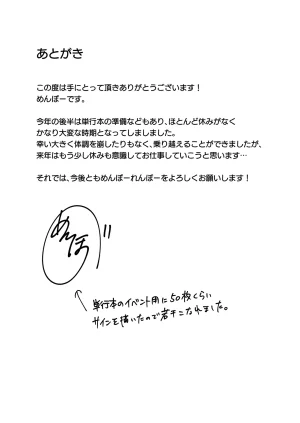 あとがき
この度は手にとって頂きありがとうございます！
めんぼーです。
今年の後半は単行本の準備などもあり、ほとんど休みがなく
かなり大変な時期となってしましました。
幸い大きく体調を崩したりもなく、乗り越えることができましたが、
来年はもう少し休みも意識してお仕事していこうと思います…
それでは、今後ともめんぼーれんぼーをよろしくお願いします！
めんぼー
単行本のイベント用に50枚くらい
サインを描いたので若干こなれました。